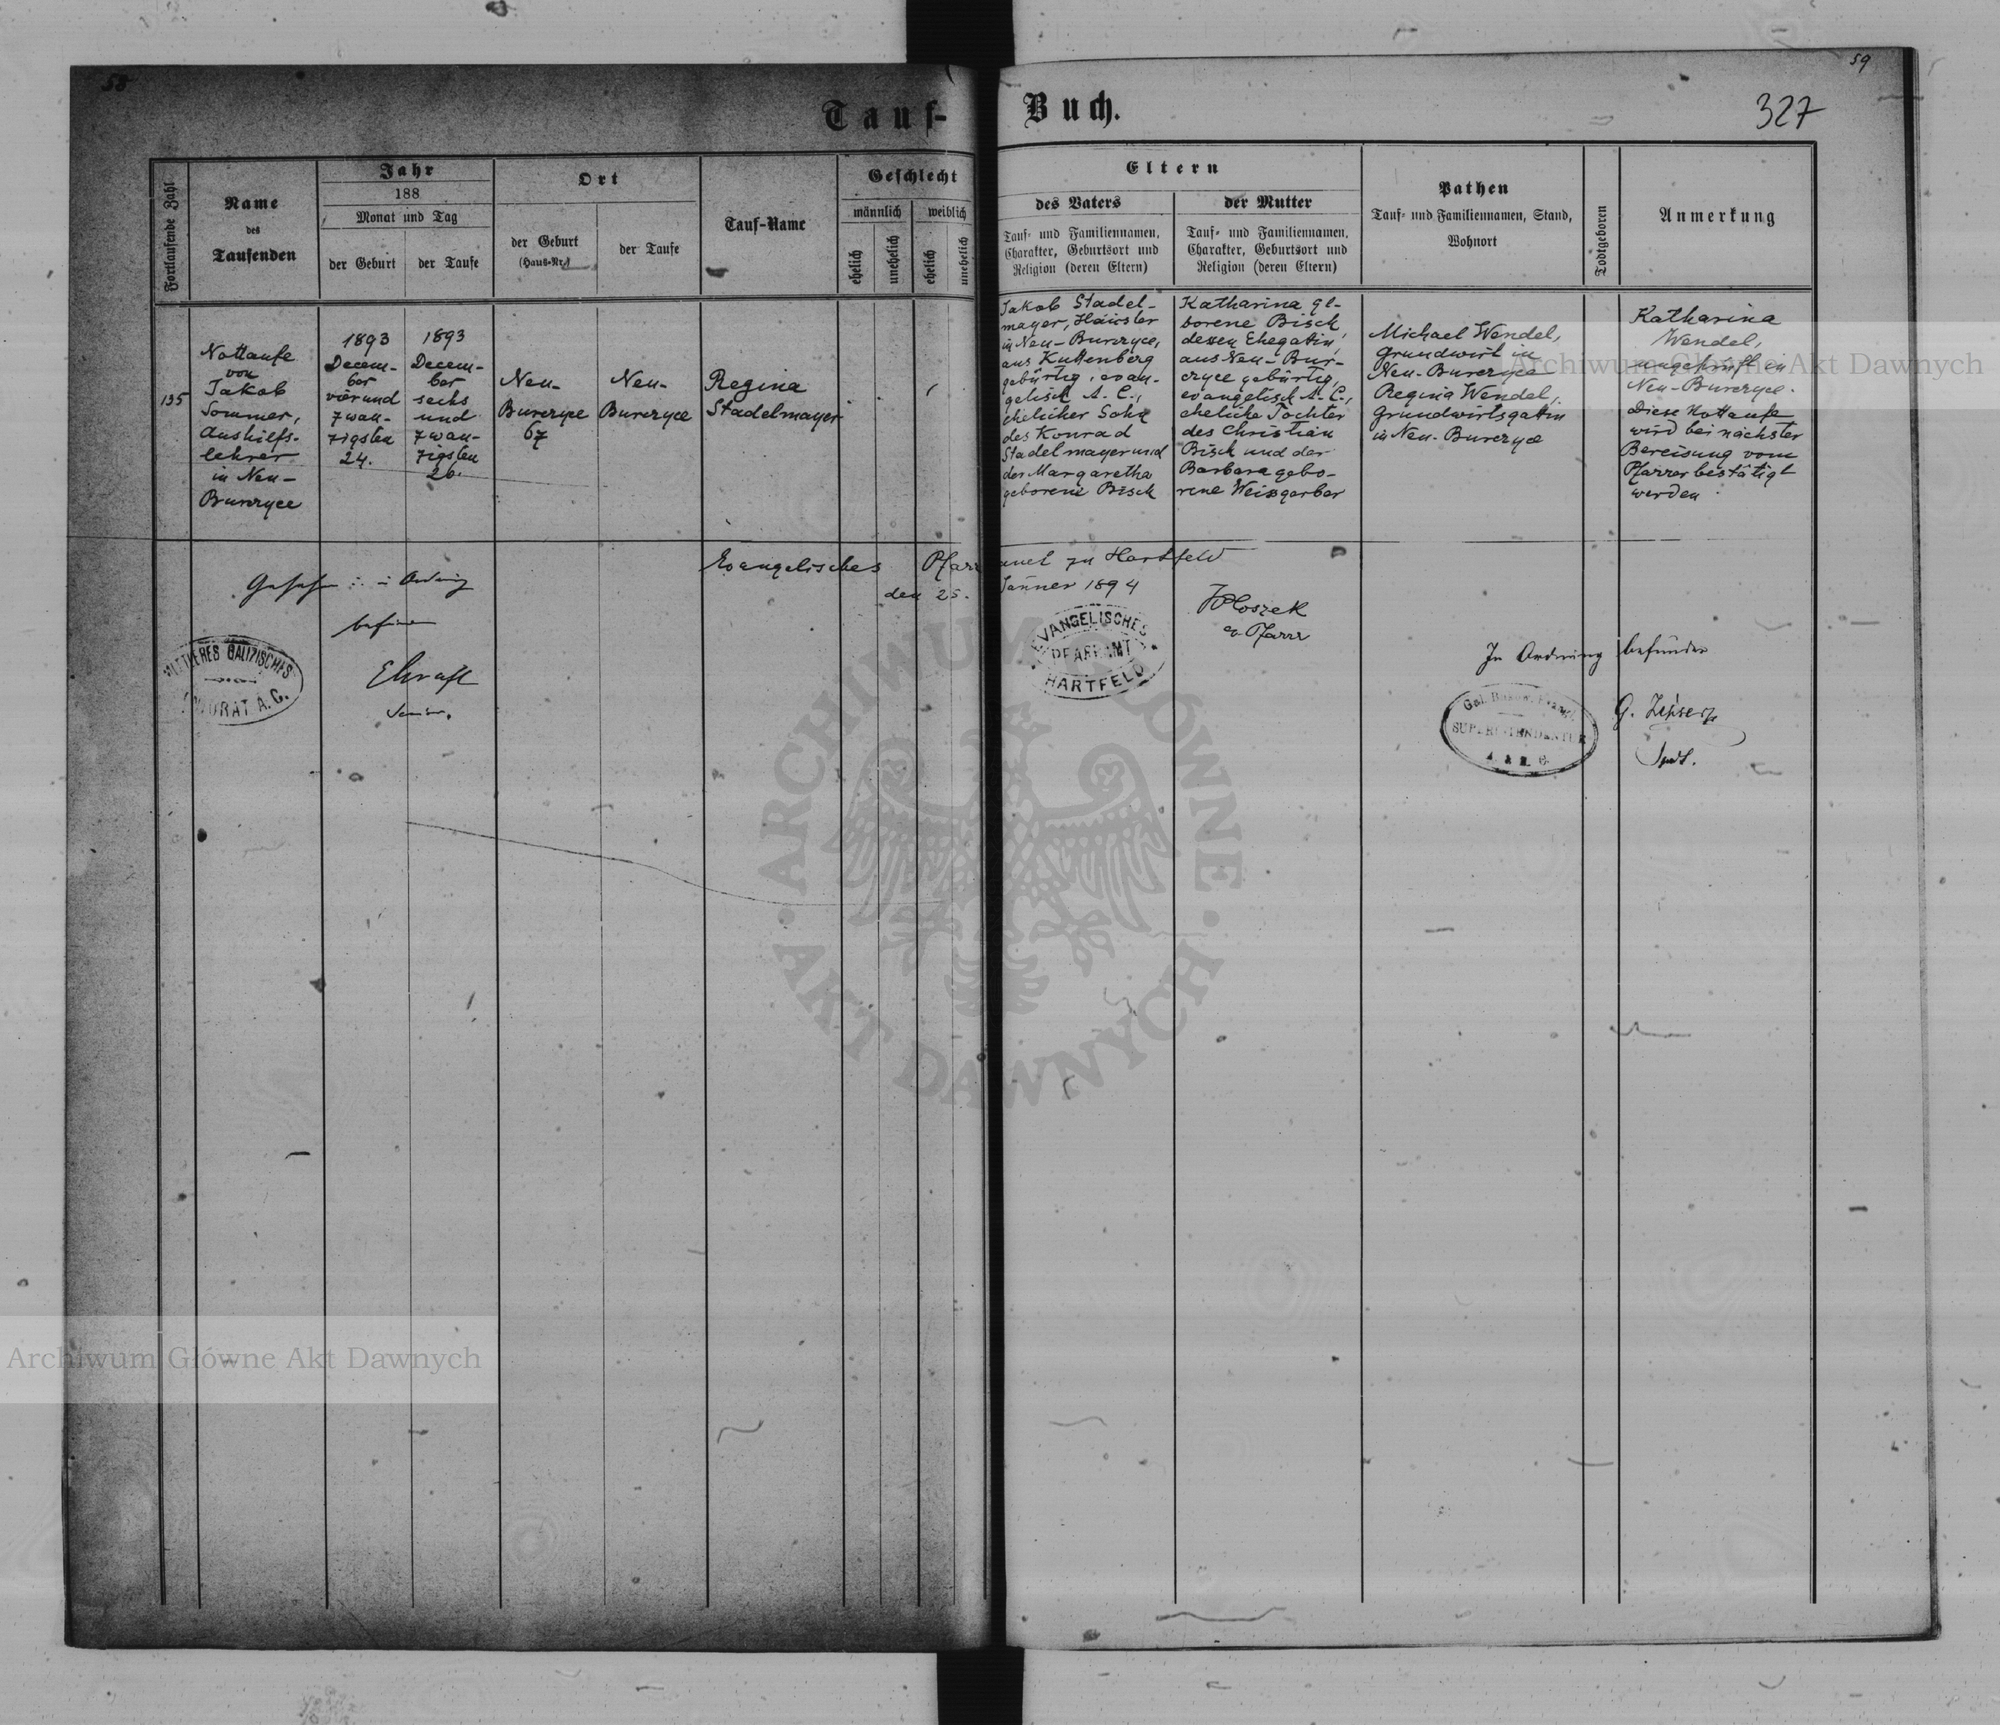 58
59
327
Tauf-Buch.
Fortlaufende Zahl
Name
des
Taufenden
Jahr
188
Monat und Tag
der Geburt
der Taufe
Ort
der Geburt
(Haus-Nr.)
der Taufe
Tauf-Name
Geschlecht
männlich
weiblich
ehelich
unehelich
ehelich
unehelich
Eltern
des Vaters
Tauf- und Familiennamen,
Charakter, Geburtsort und
Religion (deren Eltern)
der Mutter
Tauf- und Familiennamen,
Charakter, Geburtsort und
Religion (deren Eltern)
Pathen
Tauf- und Familiennamen, Stand,
Wohnort
Todtgeboren
Anmerkung
135
Nottaufe
von
Jakob
Sommer,
Aushilfs-
lehrer
in Neu-
Burczyce
1893
Decem-
ber
vierund
zwan-
zigsten
24.
1893
Decem-
ber
sechs
und
zwan-
zigsten
26.
Neu-
Burczyce
67
Neu-
Burczyce
Regina
Stadelmayer
Jakob Stadel-
mayer, Häusler
in Neu-Burczyce,
aus Kuttenberg
gebürtig, evan-
gelisch A. C.,
ehelicher Sohn
des Konrad
Stadelmayer und
der Margaretha
geborene Bisch
Katharina ge-
borene Bisch,
dessen Ehegattin,
aus Neu-Bur-
czyce gebürtig,
evangelisch A. C.,
eheliche Tochter
des Christian
Bisch und der
Barbara gebo-
rene Weisgerber
Michael Wendel,
Grundwirt in
Neu-Burczyce
Regina Wendel,
Grundwirtsgattin
in Neu-Burczyce
Katharina
Wendel,
ungeprüft in
Neu-Burczyce.
Diese Nottaufe
wird bei nächster
Bereisung vom
Pfarrer bestätigt
werden
Evangelisches Pfarramt zu Hartfeld
den 25. Jänner 1894
Ordnung
Senior.
MITTLERES GALIZISCHES
SENIORAT A. C.
EVANGELISCHES
PFARRAMT
HARTFELD
ev. Pfarrer
In Ordnung befunden
Gal. Bukow. Evang.
SUPERINTENDENTUR
A. & H. C.
G. Zipser
Archiwum Główne Akt Dawnych
Archiwum Główne Akt Dawnych
ARCHIWUM GŁÓWNE
AKT DAWNYCH